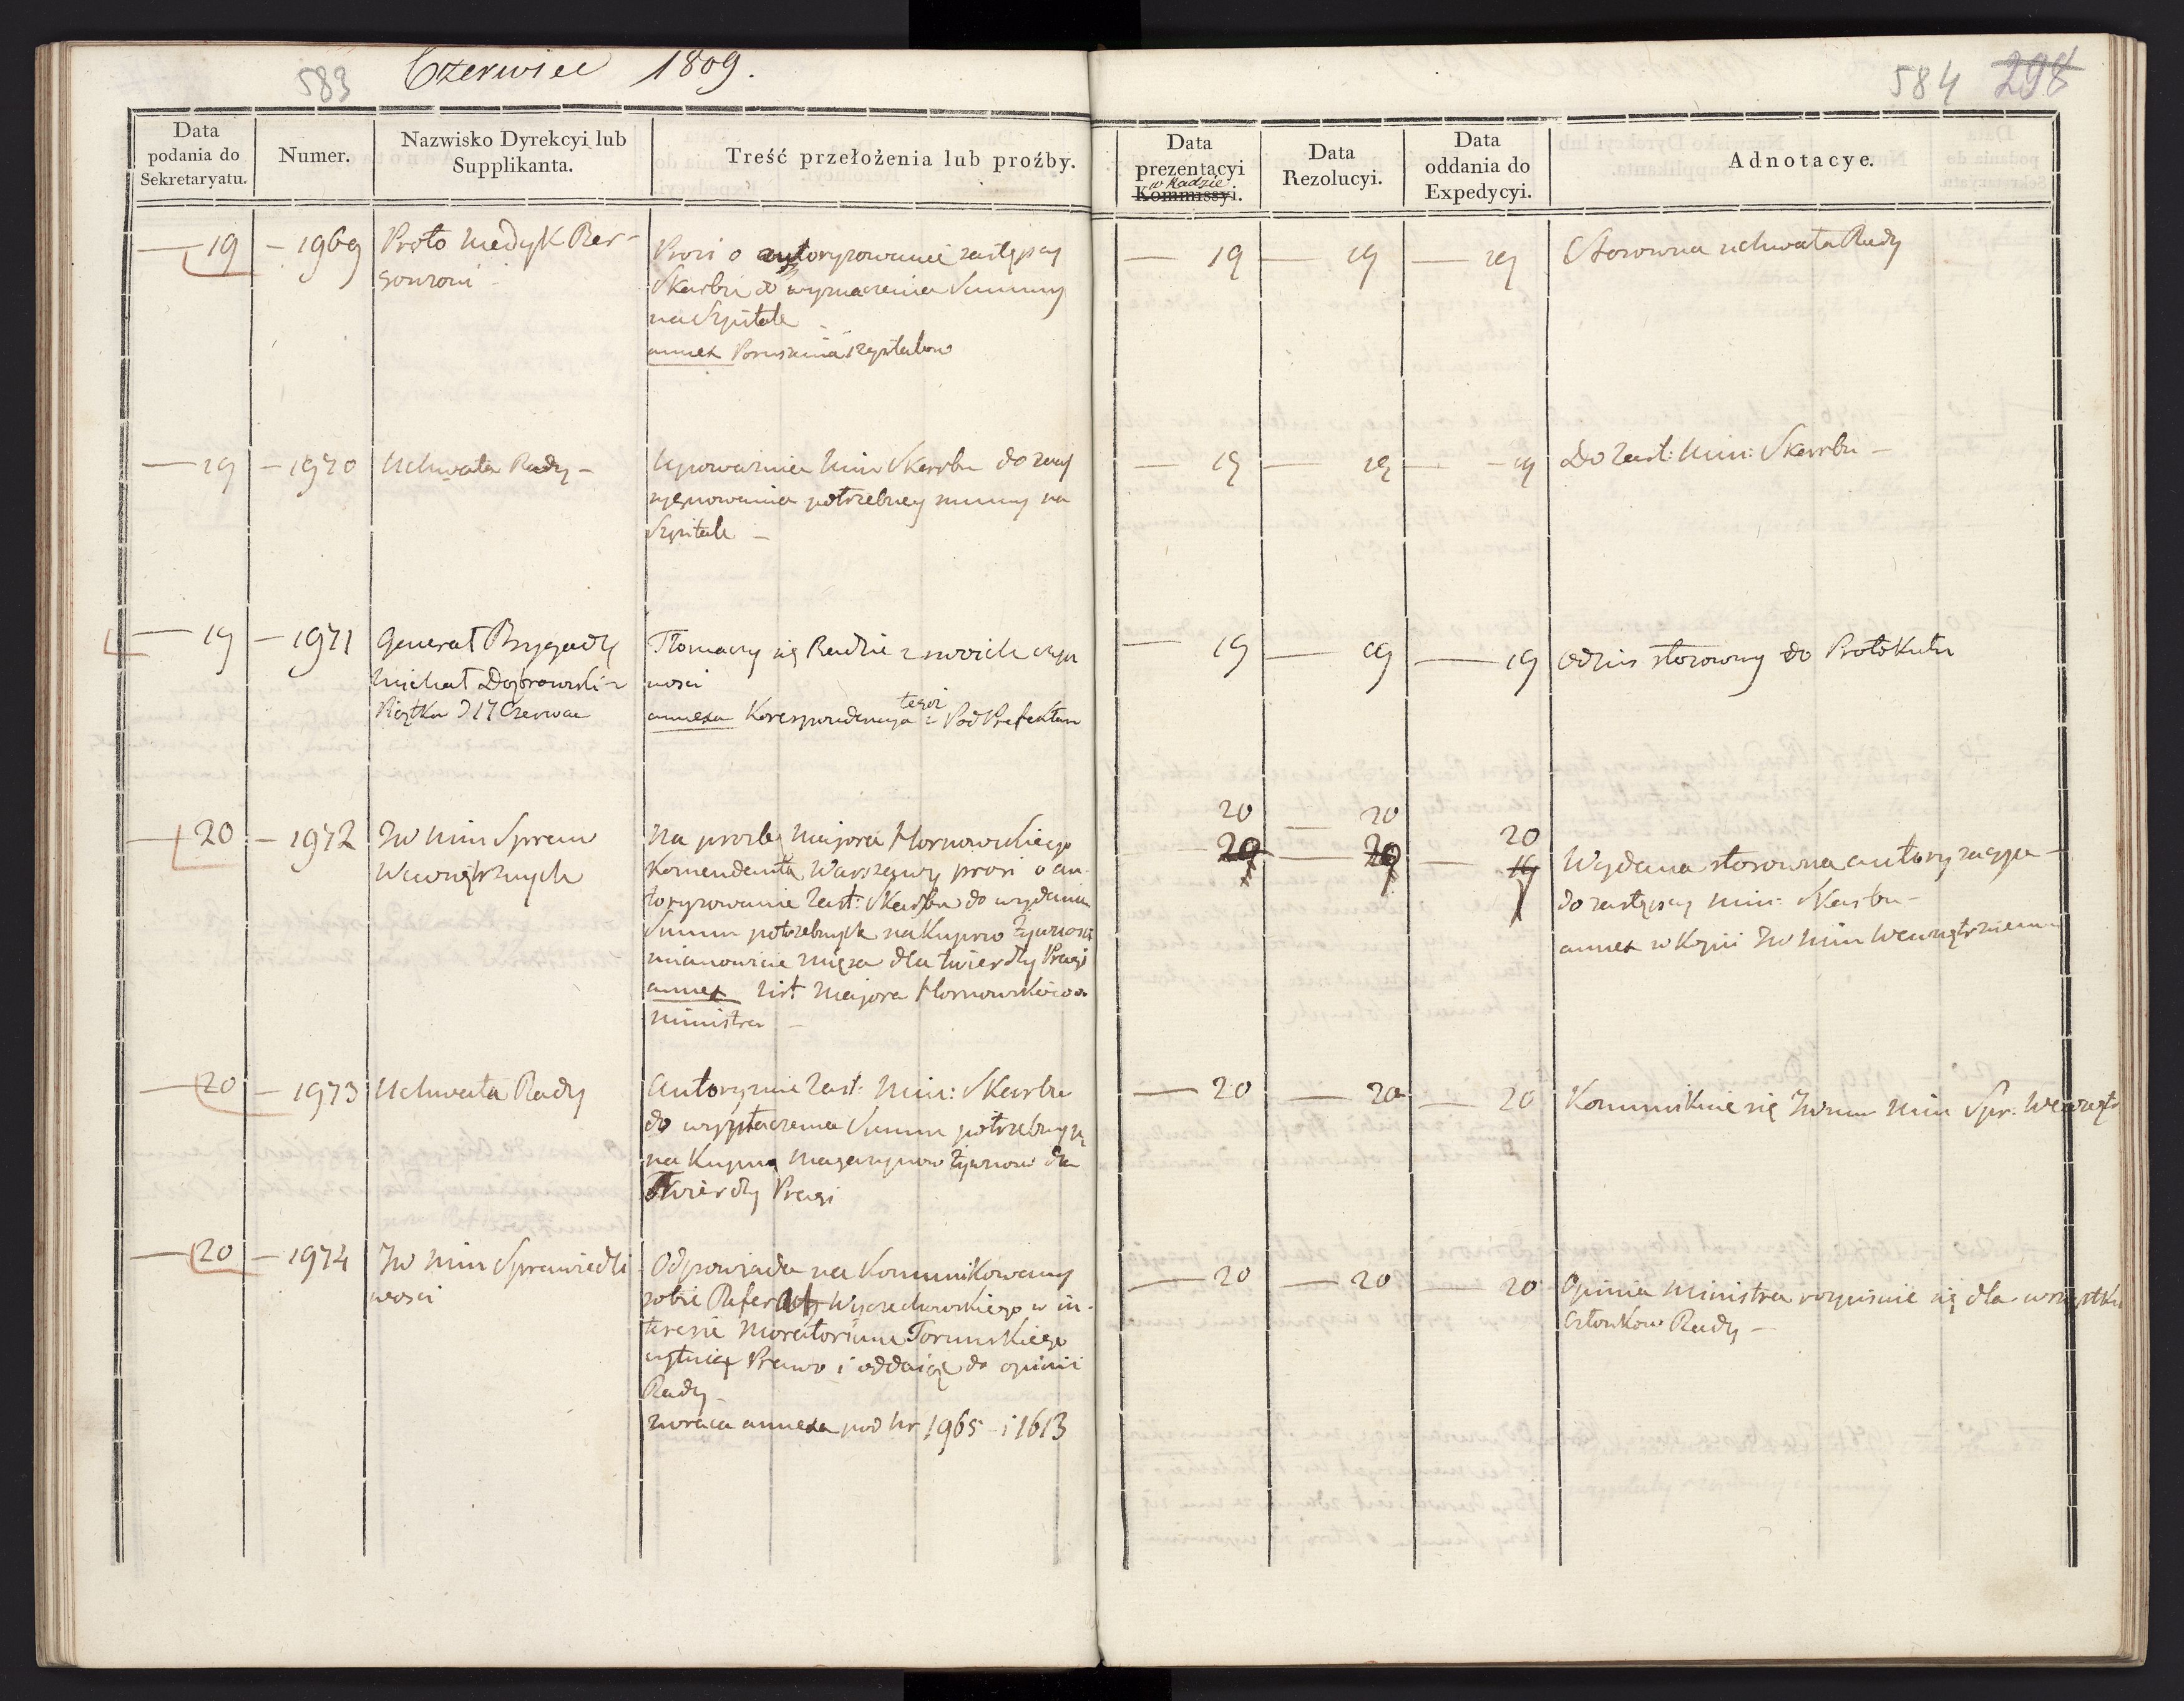 583
Czerwiec 1809.
584 298
Data podania do Sekretaryatu.
Numer.
Nazwisko Dyrekcyi lub Supplikanta.
Treść przełożenia lub proźby.
Data prezentacyi Kommissyi.
w Radzie
Data Rezolucyi.
Data oddania do Expedycyi.
Adnotacye.
— 19 — 1969
Proto Medyk Ber-
gonzoni
Prosi o autoryzowanie zastępcy
Skarbu do wyznaczenia Summy
na Szpitale
annex Poruszenia szpitalow
— 19 — 19 — 19
Stosowna uchwała Rady
— 19 — 1970
Uchwała Rady —
Upoważnia Min Skarbu do
potrzebney summy na
Szpitale —
— 19 — 19 — 19
Do Zast: Min: Skarbu —
— 19 — 1971
Generał Brygady
Michał Dąbrowski z
Piątku d 17 Czerwca
Tłomaczy się Radzie z swoich czyn
nosci
annexa Korespondencya tegoż z Pod Prefektem
— 19 — 19 — 19
odpis stosowny do Protokułu
— 20 — 1972
JW Min Spraw
Wewnętrznych
Na prozbę Majora Hornowskiego
Komendanta Warszawy prosi o au-
toryzowanie Zast: Skarbu do wydania
Summ potrzebnych na Kupno żywnosci
mianowicie mięsa dla twierdzy Pragi
annex list Majora Hornowskiego do
Ministra —
20 — 20 20
— 20 — 20 — 19
Wydana stosowna autoryzacya —
do zastępcy Min: Skarbu —
annex w Kopii JW Min Wewnętrznemu
— 20 — 1973
Uchwała Rady
Autoryzuie Zast: Min: Skarbu
do wypłacenia Summ potrzebnych
na Kupno Magazynow żywnosci dla
Twierdzy Pragi
— 20 — 20 — 20
Kommunikuie się JWmu Min Spr. Wewnętr
— 20 — 1974
JW Min Sprawiedli
wosci
Odpowiada na Kommunikowany
sobie Referat Wyczechowskiego w in-
teresie Moratorium Torunskiego
cytuiąc Prawo i oddaiąc do opinii
Rady —
zwraca annexa pod Nr 1965 i 1613
— 20 — 20 — 20
Opinia Ministra rozpisuie się dla wszystkich
Członkow Rady —